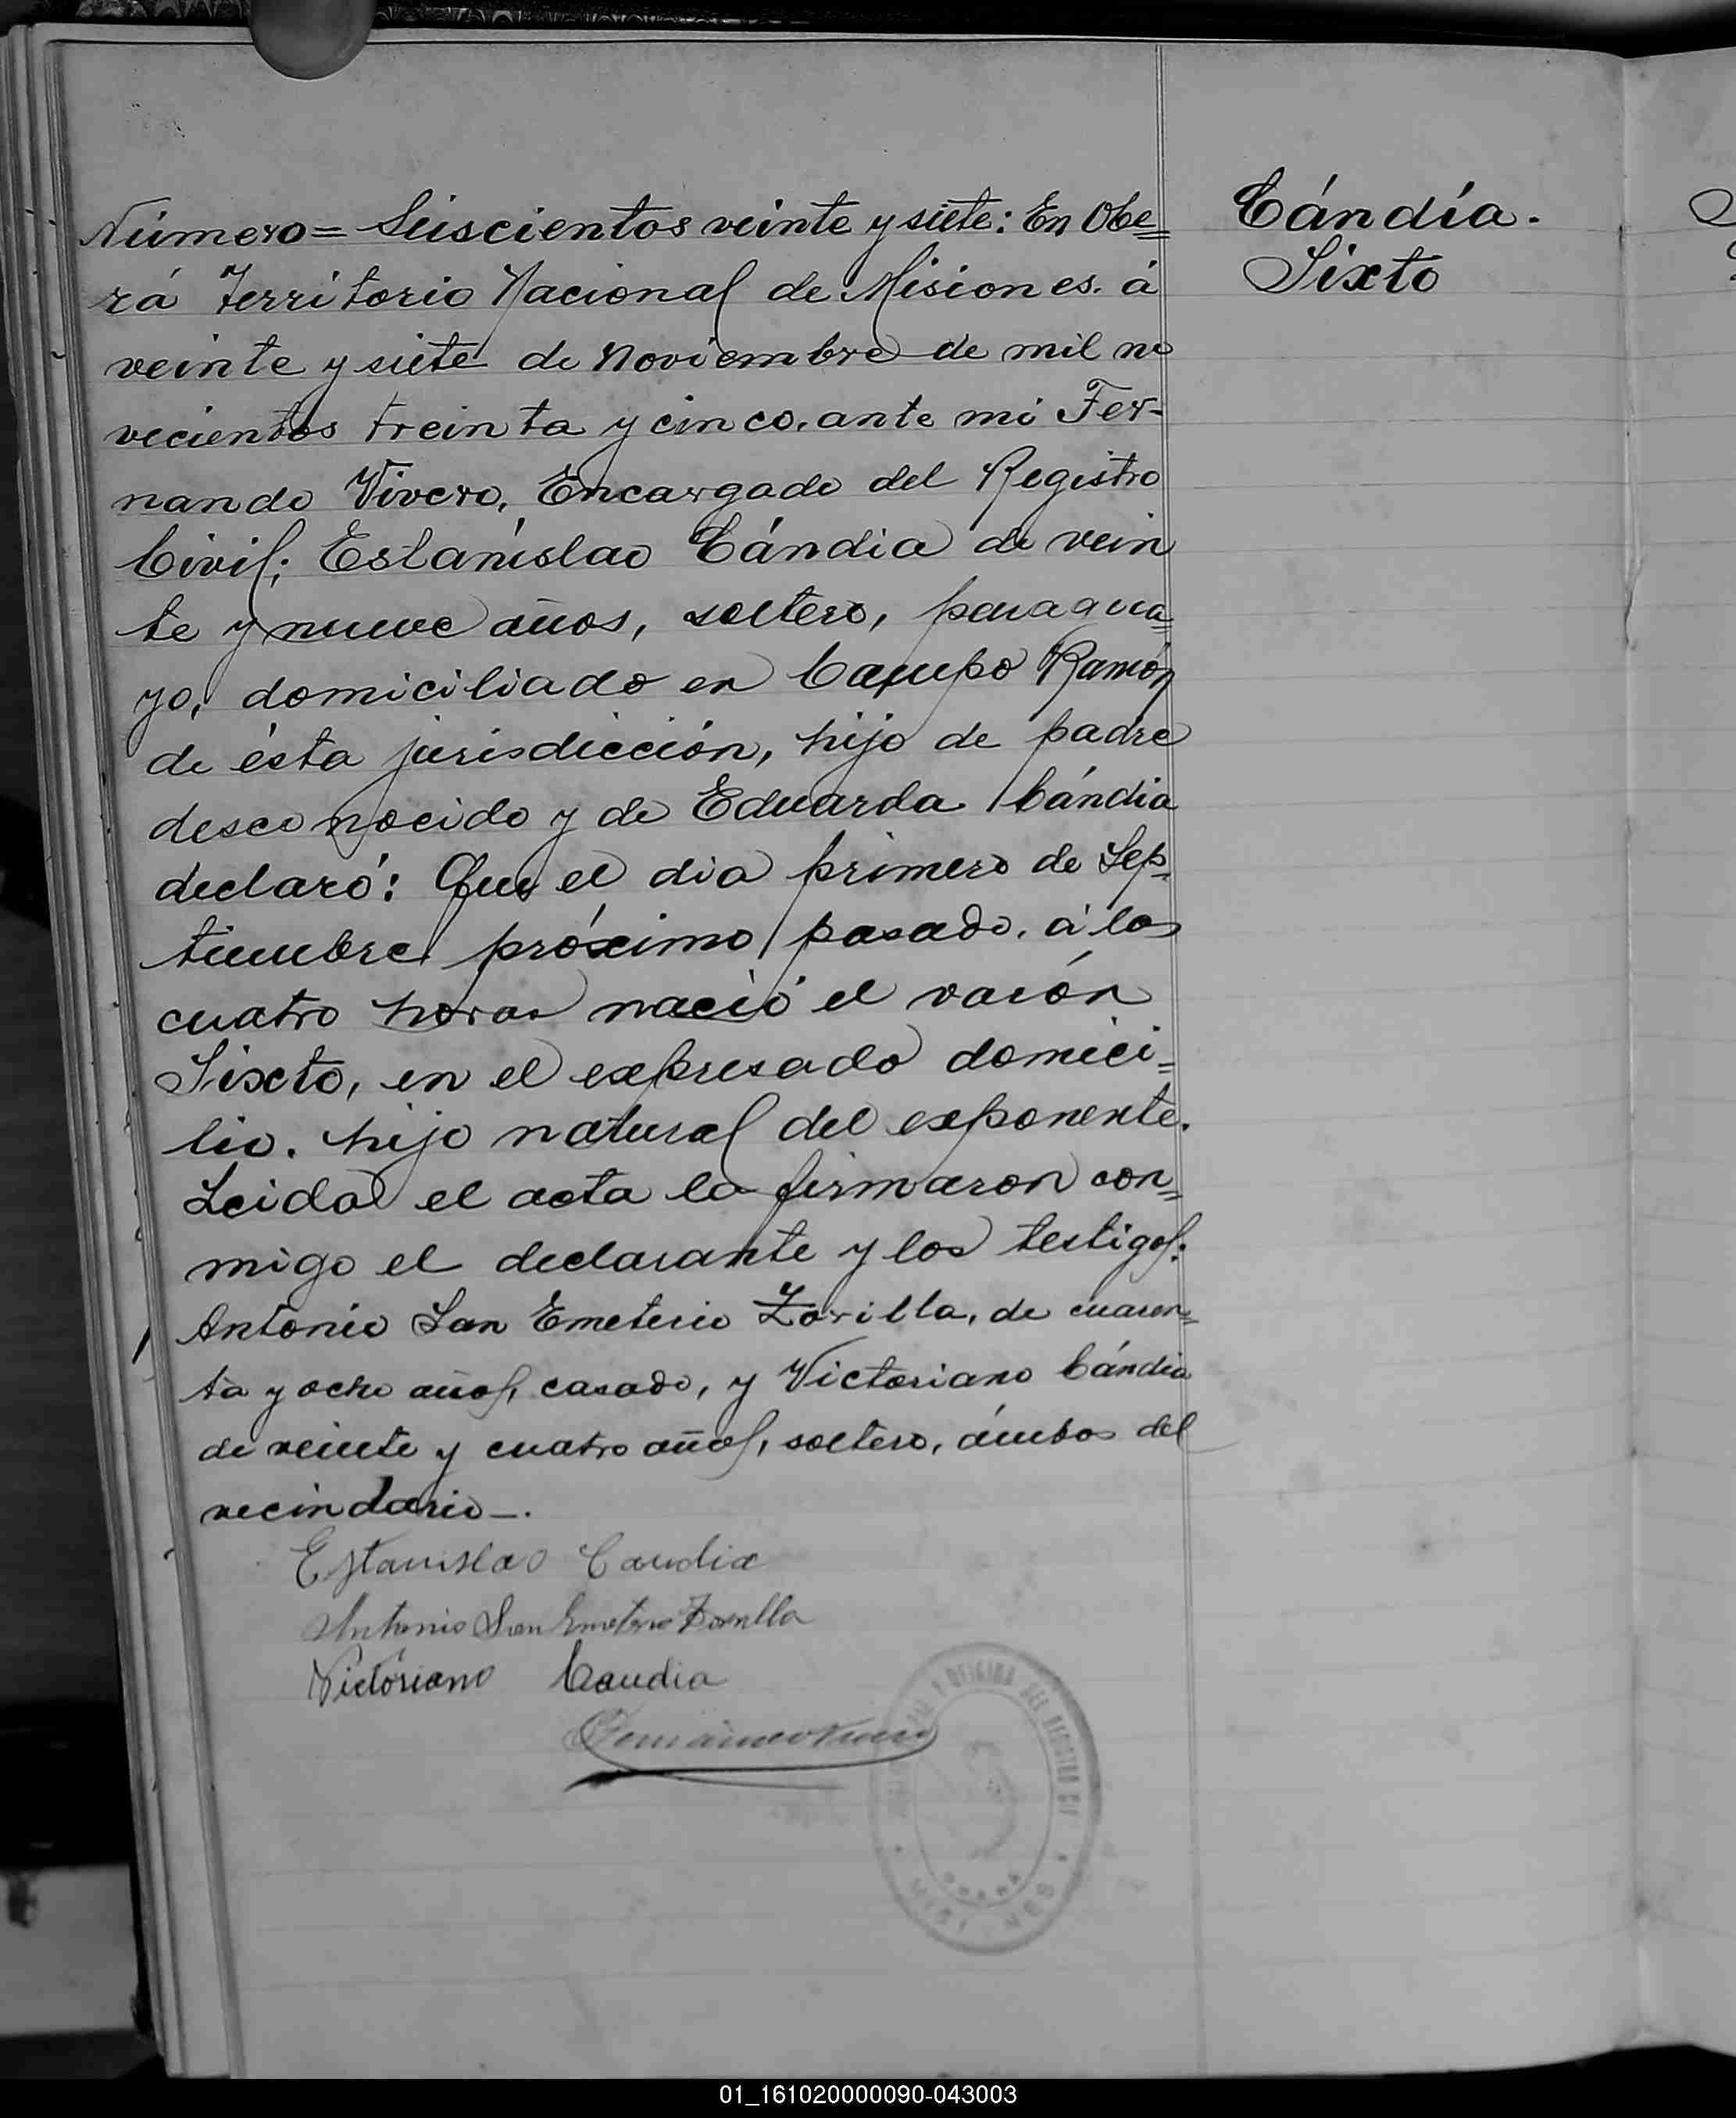 Número = Seiscientos veinte y siete: En Obe=
rá Territorio Nacional de Misiones. á
veinte y siete de Noviembre de mil no
vecientos treinta y cinco. ante mi Fer-
nando Vivero, Encargado del Registro
Civil; Estanislao Cándia de vein
te y nueve años, soltero, paragua=
yo, domiciliado en Campo Ramón
de ésta jurisdicción, hijo de padre
desconocido y de Eduarda Cándia
declaró: Que el dia primero de Sep=
tiembre próximo pasado. á las
cuatro horas nació el varón
Sixto, en el expresado domici=
lio. hijo natural del exponente.
Leida el acta la firmaron con=
migo el declarante y los testigos:
Antonio San Emeterio Zorilla, de cuaren=
ta y ocho años, casado, y Victoriano Cándia
de veinte y cuatro años, soltero, ámbos del
vecindario-.
Estanislao Candia
Antonio San Emeterio Zorilla
Victoriano Candia
Cándia.
Sixto
OFICINA DEL REGISTRO
01_161020000090-043003